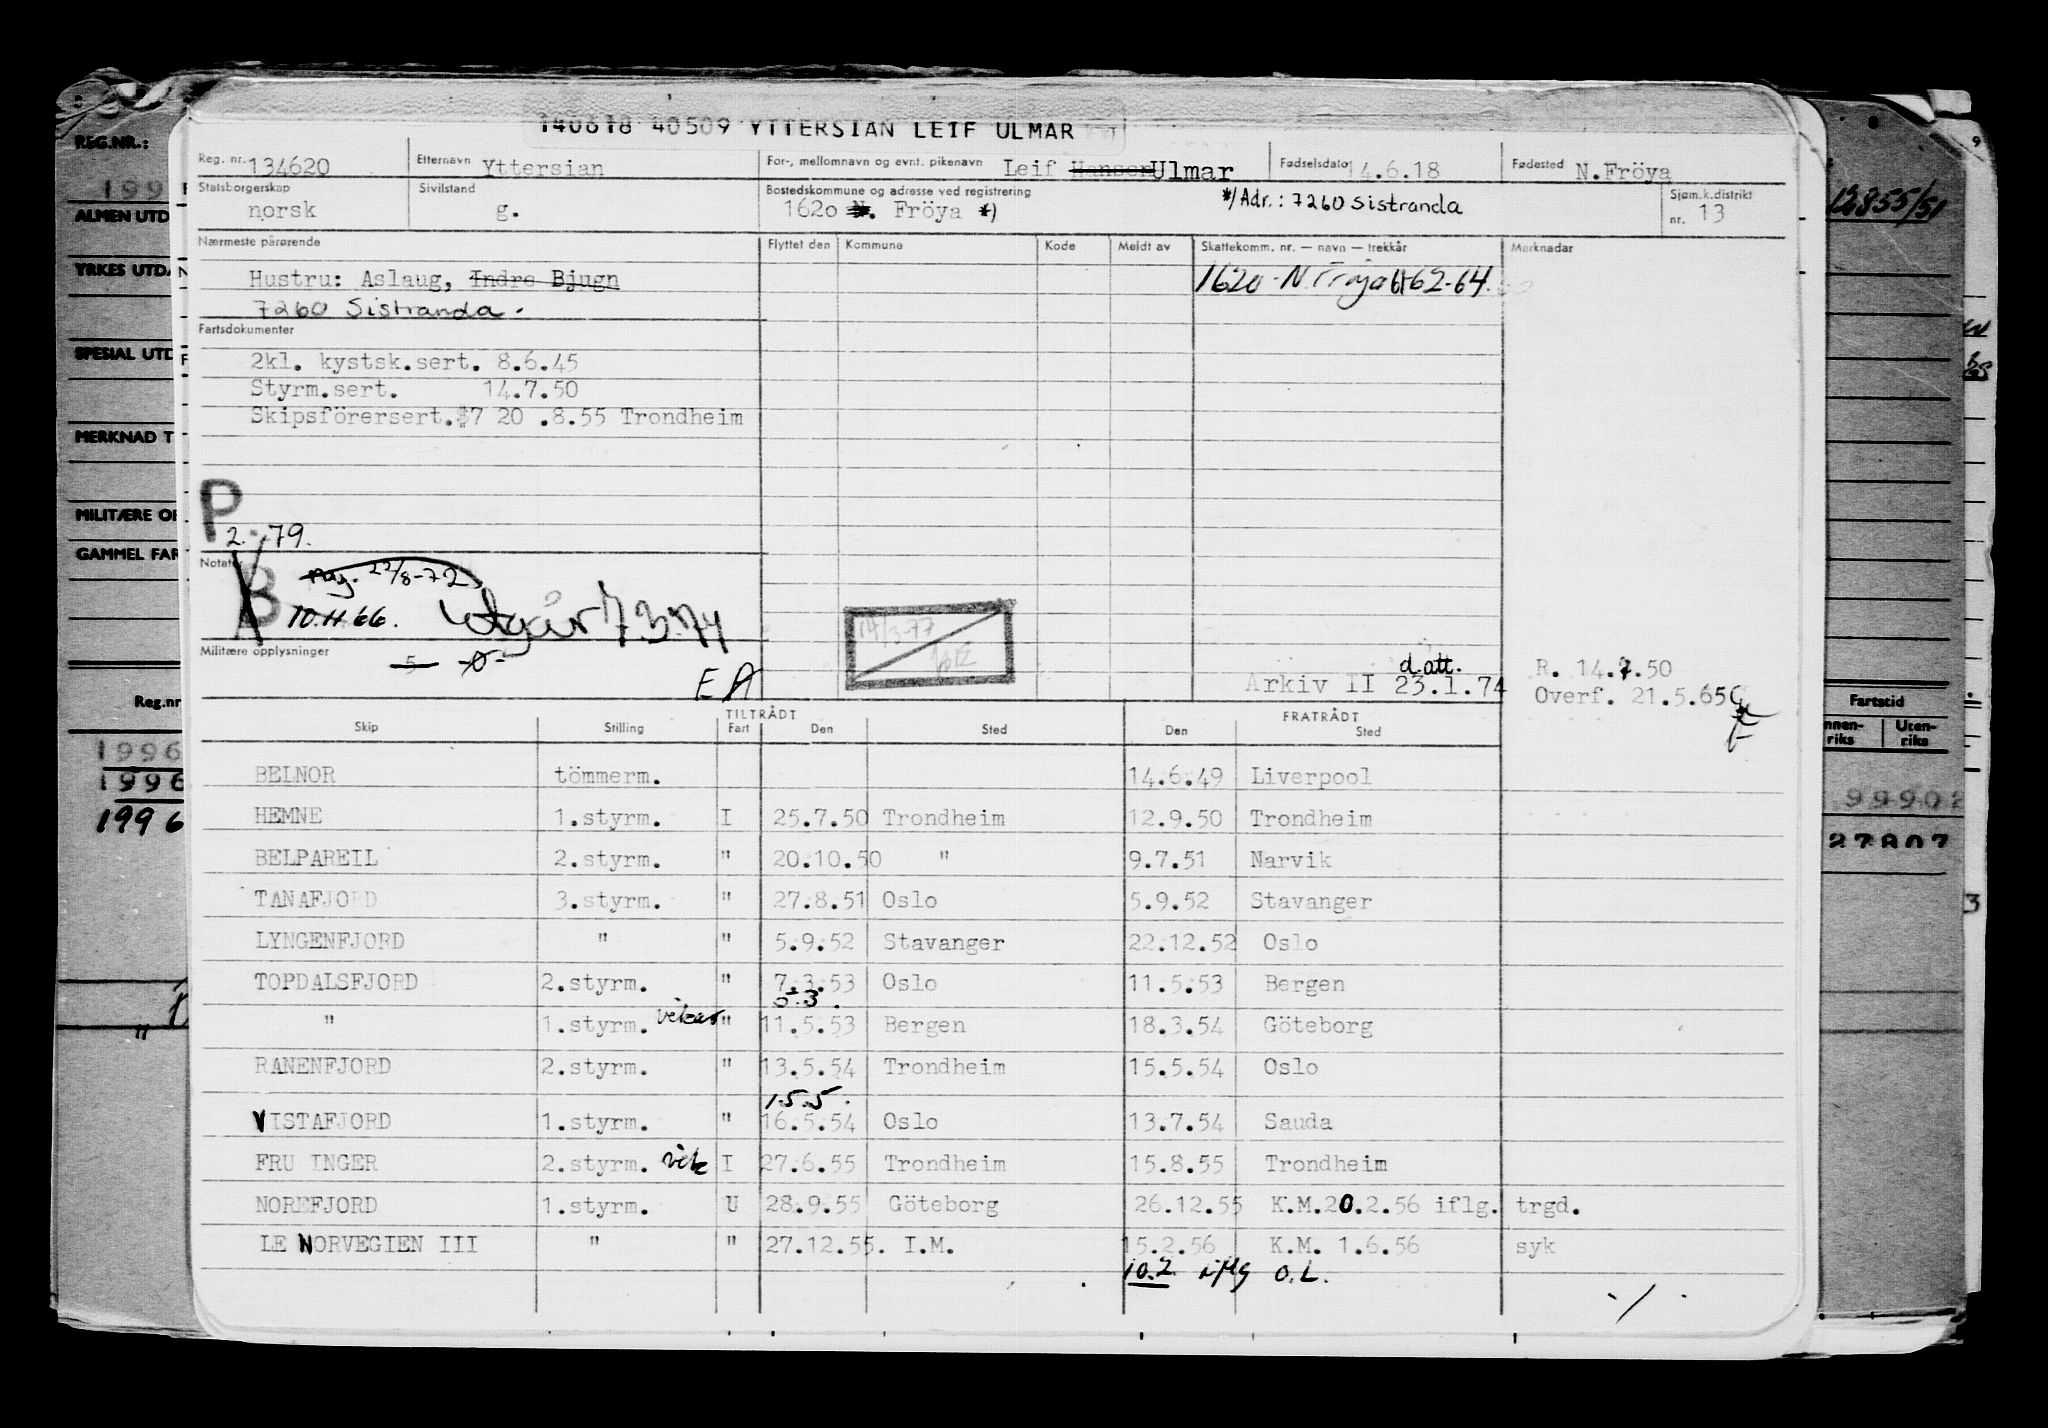 140618 40509 YTTERSIAN LEIF ULMAR
Reg. nr. 134620 Etternavn Yttersian For-, mellomnavn og evnt. pikenavn Leif Hanson Ulmar Fødselsdato 14.6.18 Fødested N.Fröya
Statsborgerskap norsk Sivilstand g. Bostedskommune og adresse ved registrering 1620 N. Fröya *) */Adr.: 7260 Sistranda Sjøm.k.distrikt nr. 13
Nærmeste pårørende Flyttet den Kommune Kode Meldt av Skattekomm. nr. — navn — trekkår Merknader
Hustru: Aslaug, Indre Bjugn 1620 - N. Fröya 62-64.
7260 Sistranda.
Fartsdokumenter
2kl. kystsk.sert. 8.6.45
Styrm.sert. 14.7.50
Skipsförersert. 20 .8.55 Trondheim
P
2. -79.
Notater
B 22/8-72
10.11.66. Utgår 7.3.74
14/3-77
Militære opplysninger
5
EA
d.att.
Arkiv II 23.1.74
R. 14.7.50
Overf. 21.5.65
TILTRÅDT FRATRÅDT
Skip Stilling Fart Den Sted Den Sted
BELNOR tömmerm. 14.6.49 Liverpool
HEMNE 1.styrm. I 25.7.50 Trondheim 12.9.50 Trondheim
BELPAREIL 2.styrm. " 20.10.50 " 9.7.51 Narvik
TANAFJORD 3.styrm. " 27.8.51 Oslo 5.9.52 Stavanger
LYNGENFJORD " " 5.9.52 Stavanger 22.12.52 Oslo
TOPDALSFJORD 2.styrm. " 7.3.53 Oslo 11.5.53 Bergen
5.3.
" 1.styrm. vikar " 11.5.53 Bergen 18.3.54 Göteborg
RANENFJORD 2.styrm. " 13.5.54 Trondheim 15.5.54 Oslo
15.5.
VISTAFJORD 1.styrm. " 16.5.54 Oslo 13.7.54 Sauda
FRU INGER 2.styrm. vik I 27.6.55 Trondheim 15.8.55 Trondheim
NOREFJORD 1.styrm. U 28.9.55 Göteborg 26.12.55 K.M.20.2.56 iflg. trgd.
LE NORVEGIEN III " " 27.12.55. I.M. 15.2.56 K.M. 1.6.56 syk
10.2 iflg O.L.
./.
REG.NR.:
199
ALMEN UTD
YRKES UTDA
SPESIAL UTD
MERKNAD T
MILITÆRE OP
GAMMEL FAR
Reg.nr
1996
1996
1996
"
12855/51
Fartstid
Innen-riks Uten-riks
99902
27807
3